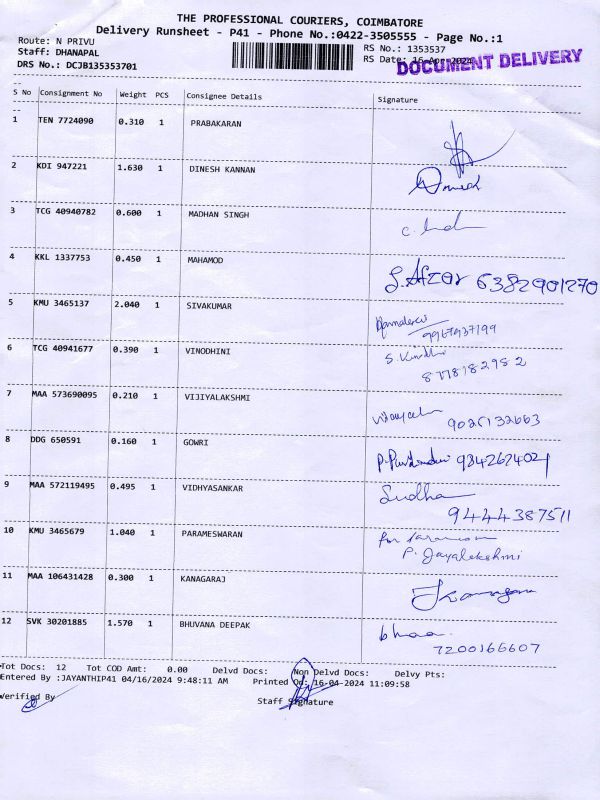 THE PROFESSIONAL COURIERS, COIMBATORE
Delivery Runsheet - P41 - Phone No.:0422-3505555 - Page No.:1
Route: N PRIVU
RS No.: 1353537
Staff: DHANAPAL
RS Date: 16-Apr-2024
DOCUMENT DELIVERY
DRS No.: DCJB135353701
S No Consignment No Weight PCS Consignee Details Signature
1 TEN 7724090 0.310 1 PRABAKARAN
2 KDI 947221 1.630 1 DINESH KANNAN
3 TCG 40940782 0.600 1 MADHAN SINGH
4 KKL 1337753 0.450 1 MAHAMOD
S.Afzar 6382901270
5 KMU 3465137 2.040 1 SIVAKUMAR
9967937199
6 TCG 40941677 0.390 1 VINODHINI
8778182982
7 MAA 573690095 0.210 1 VIJIYALAKSHMI
9026132663
8 DDG 650591 0.160 1 GOWRI
9342624021
9 MAA 572119495 0.495 1 VIDHYASANKAR
Sudha
9444387511
10 KMU 3465679 1.040 1 PARAMESWARAN
for
P. Jayalekshmi
11 MAA 106431428 0.300 1 KANAGARAJ
12 SVK 30201885 1.570 1 BHUVANA DEEPAK
7200166607
Tot Docs: 12 Tot COD Amt: 0.00 Delvd Docs: Non Delvd Docs: Delvy Pts:
Entered By :JAYANTHIP41 04/16/2024 9:48:11 AM Printed On: 16-04-2024 11:09:58
Verified By Staff Signature